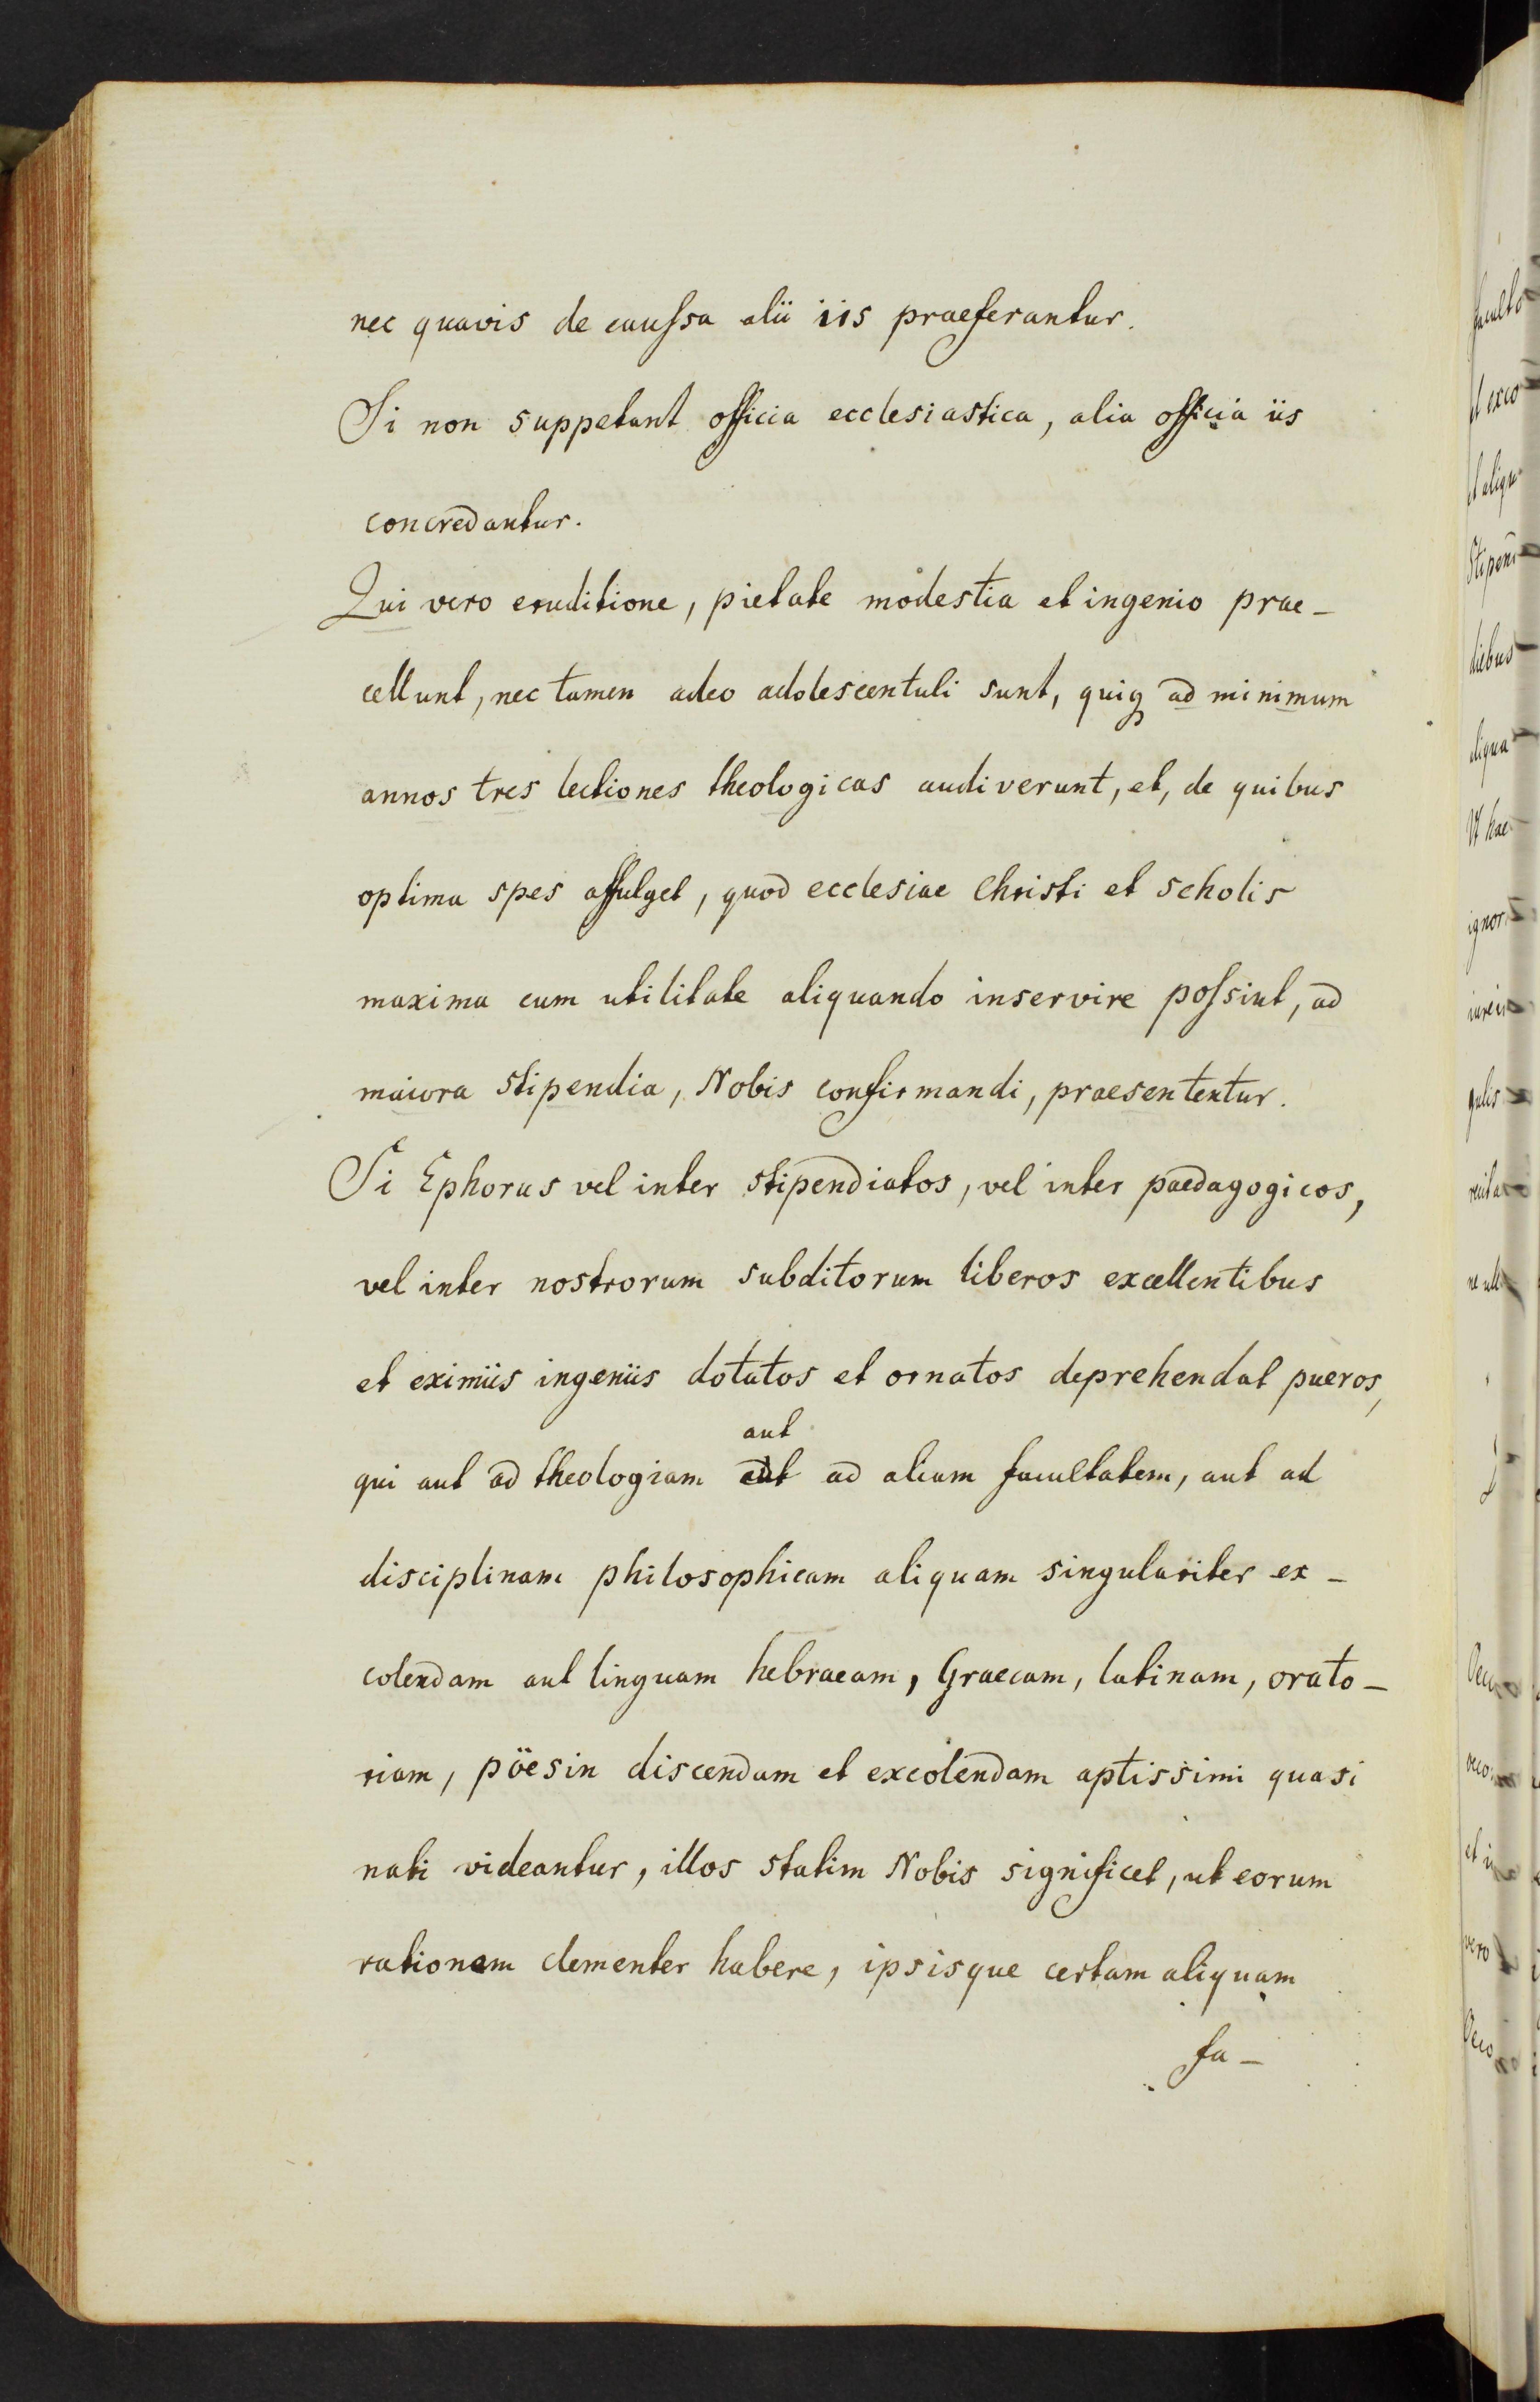 nec quavis de caussa alii iis praeferantur.
Si non suppetant officia ecclesiastica, alia officia iis
concredantur.
Qui vero eruditione, pietate modestia et ingenio prae-
cellunt, nec tamen adeo adolescentuli sunt, quiq ad minimum
annos tres lectiones theologicas audiverunt, et, de quibus
optima spes affulget, quod ecclesiae Christi et scholis
maxima cum utilitate aliquando inservire possint, ad
maiora stipendia, Nobis confirmandi, praesententur.
Si Ephorus vel inter stipendiatos, vel inter paedagogicos,
vel inter nostrorum subditorum liberos excellentibus
et eximiis ingeniis dotatos et ornatos deprehendat pueros,
aut
qui aut ad theologiam aut ad aliam facultatem, aut ad
disciplinam philosophicam aliquam singulariter ex-
colendam aut linguam hebraeam, Graecam, latinam, orato-
riam, pöesin discendam et excolendam aptissimi quasi
nati videantur, illos statim Nobis significet, ut eorum
rationem clementer habere, ipsisque certam aliquam
fa-